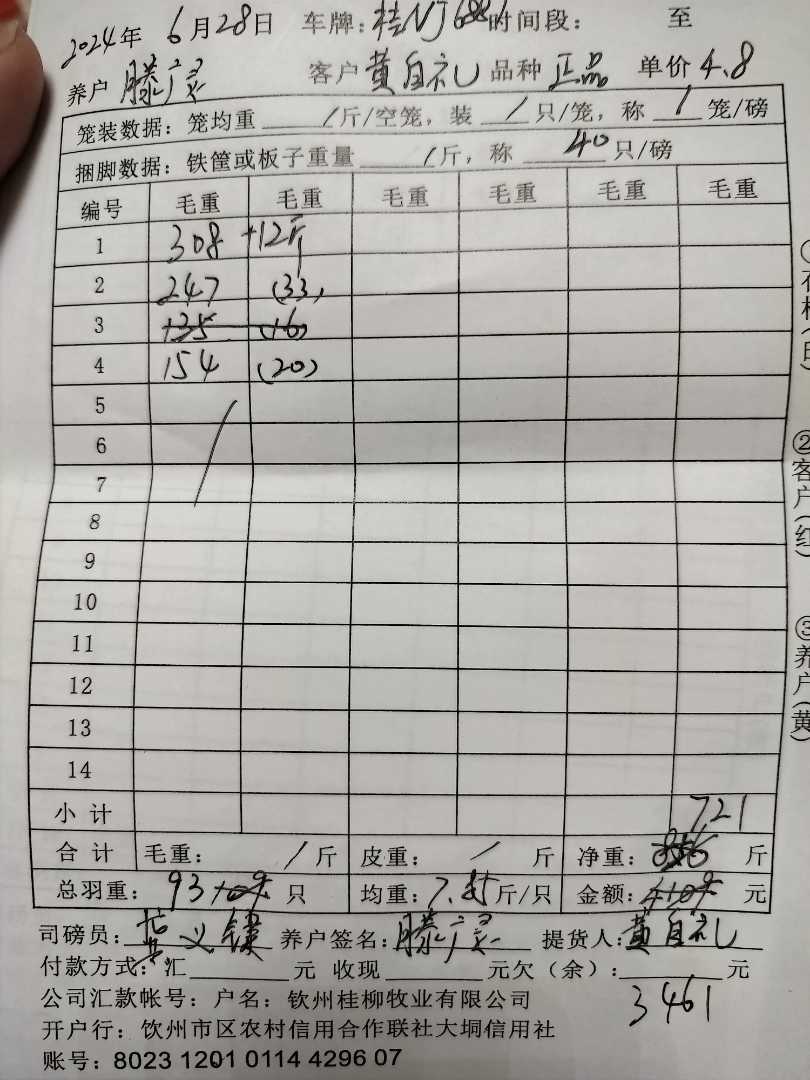 2024年 6月28日 车牌:桂NJ688 时间段: 至
养户 滕广灵 客户 黄自礼 品种 正品 单价 4.8
笼装数据:笼均重 / 斤/空笼,装 / 只/笼,称 / 笼/磅
捆脚数据:铁筐或板子重量 / 斤,称 40 只/磅
编号 毛重 毛重 毛重 毛重 毛重 毛重
1 308 +12斤
2 247 (33)
3 135 (16)
4 154 (20)
5
6
7
8
9
10
11
12
13
14
小计 721
合计 毛重: / 斤 皮重: / 斤 净重: 856 斤
总羽重: 93 109 只 均重: 7. 斤/只 金额: 4109 元
司磅员: 义 养户签名: 滕广灵 提货人: 黄自礼
付款方式:汇 元 收现 元欠(余): 元
3461
公司汇款帐号:户名:钦州桂柳牧业有限公司
开户行:钦州市区农村信用合作联社大垌信用社
账号:8023 1201 0114 4296 07
②客户(红)
③养户(黄)